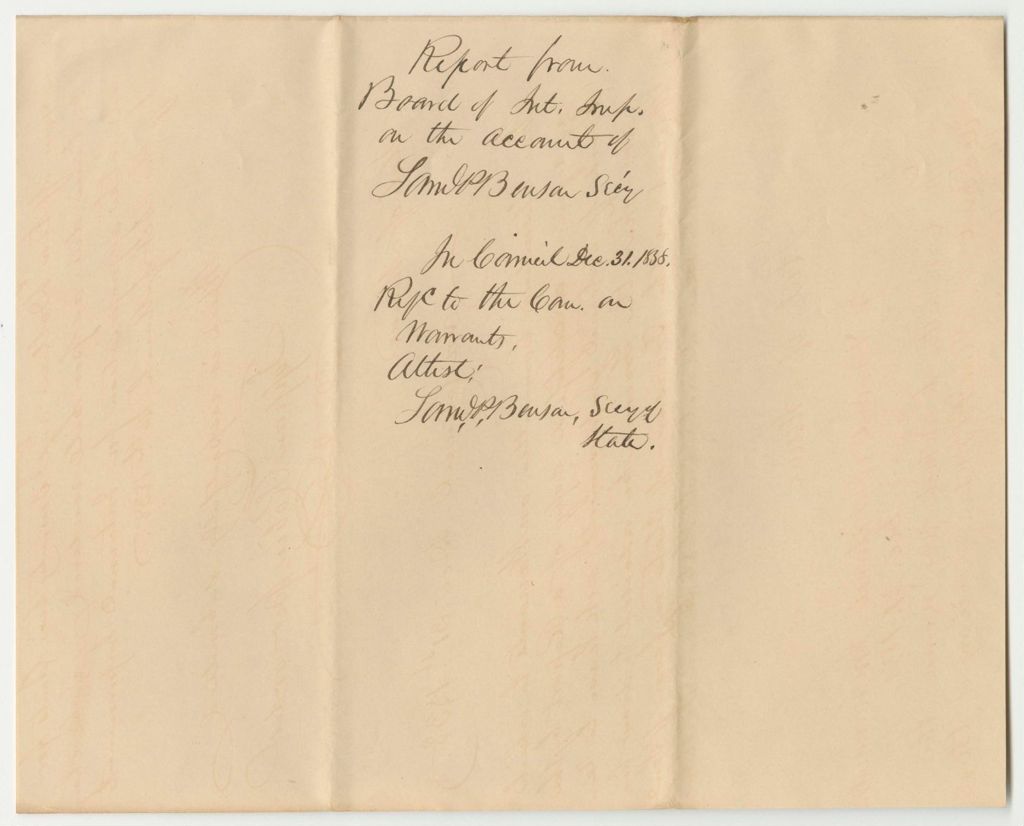 Report from.
Board of Int. Imp.
on the account of
Saml P Benson Secy
In Council Dec. 31. 1838.
Refd to the Com. on
Warrants,
Attest;
Saml. P. Benson, Secy of
State.